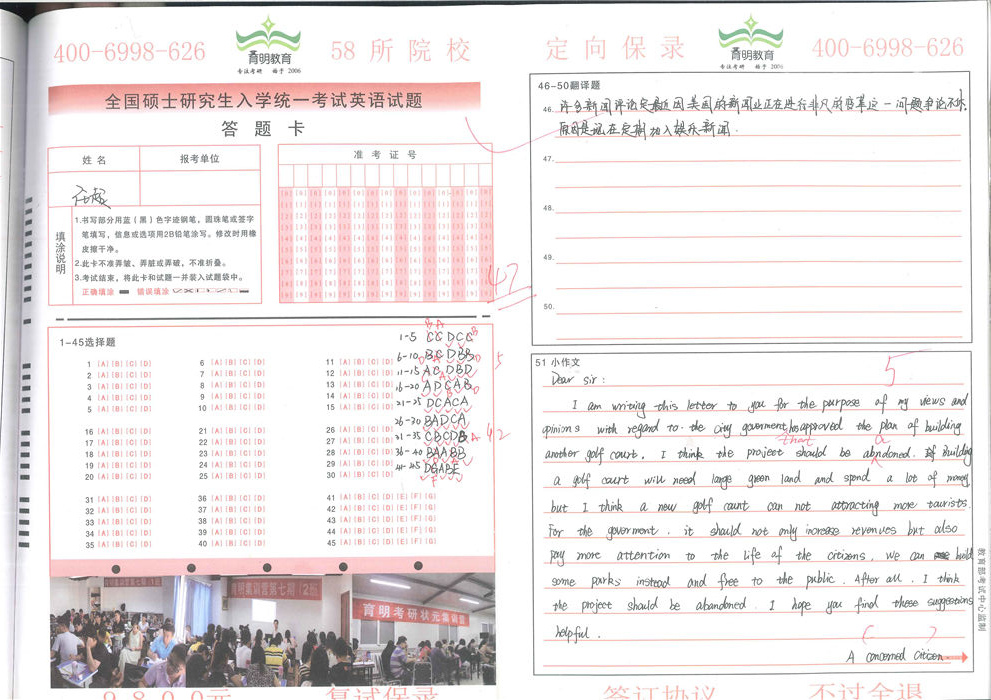 400-6998-626
育明教育
专注考研 始于 2006
58 所 院 校
定 向 保 录
育明教育
专注考研 始于 2006
400-6998-626
全国硕士研究生入学统一考试英语试题
答 题 卡
姓 名
报考单位
准 考 证 号
填涂说明
1.书写部分用蓝(黑)色字迹钢笔，圆珠笔或签字
笔填写，信息或选项用2B铅笔涂写。修改时用橡
皮擦干净。
2.此卡不准弄皱、弄脏或弄破，不准折叠。
3.考试结束，将此卡和试题一并装入试题袋中。
正确填涂 错误填涂
47
1-45选择题
1 [A] [B] [C] [D]
2 [A] [B] [C] [D]
3 [A] [B] [C] [D]
4 [A] [B] [C] [D]
5 [A] [B] [C] [D]
6 [A] [B] [C] [D]
7 [A] [B] [C] [D]
8 [A] [B] [C] [D]
9 [A] [B] [C] [D]
10 [A] [B] [C] [D]
11 [A] [B] [C] [D]
12 [A] [B] [C] [D]
13 [A] [B] [C] [D]
14 [A] [B] [C] [D]
15 [A] [B] [C] [D]
16 [A] [B] [C] [D]
17 [A] [B] [C] [D]
18 [A] [B] [C] [D]
19 [A] [B] [C] [D]
20 [A] [B] [C] [D]
21 [A] [B] [C] [D]
22 [A] [B] [C] [D]
23 [A] [B] [C] [D]
24 [A] [B] [C] [D]
25 [A] [B] [C] [D]
26 [A] [B] [C] [D]
27 [A] [B] [C] [D]
28 [A] [B] [C] [D]
29 [A] [B] [C] [D]
30 [A] [B] [C] [D]
31 [A] [B] [C] [D]
32 [A] [B] [C] [D]
33 [A] [B] [C] [D]
34 [A] [B] [C] [D]
35 [A] [B] [C] [D]
36 [A] [B] [C] [D]
37 [A] [B] [C] [D]
38 [A] [B] [C] [D]
39 [A] [B] [C] [D]
40 [A] [B] [C] [D]
41 [A] [B] [C] [D] [E] [F] [G]
42 [A] [B] [C] [D] [E] [F] [G]
43 [A] [B] [C] [D] [E] [F] [G]
44 [A] [B] [C] [D] [E] [F] [G]
45 [A] [B] [C] [D] [E] [F] [G]
1-5 CCDCC
6-10 BCDBB
11-15 ACDBD
16-20 ADCAB
21-25 DCACA
26-30 BADCA
31-35 CBCDB
36-40 BAABB
41-45 DGABE
5
42
育明集训营第七期(2班)
育明考研状元集训营
9 8 0 0 元
复试保录
46-50翻译题
46. 许多新闻评论定最近因美国的新闻业正在进行非凡的变革这一问题争论不休.
原因是现在定期加入娱乐新闻.
47.
48.
49.
50.
51 小作文
5
Dear sir:
I am writing this letter to you for the purpose of my views and
opinions with regard to the city goverment has approved the plan of building
another golf court. I think the project should be abndoned. If building
a golf court will need large green land and spend a lot of money
but I think a new golf count can not attracting more tourists.
For the goverment, it should not only increase revenues but also
pay more attention to the life of the citizens. We can build
some parks instead and free to the public. After all, I think
the project should be abandoned. I hope you find these suggestions
helpful.
A concerned citizen
教育部考试中心监制
签订协议
不过全退